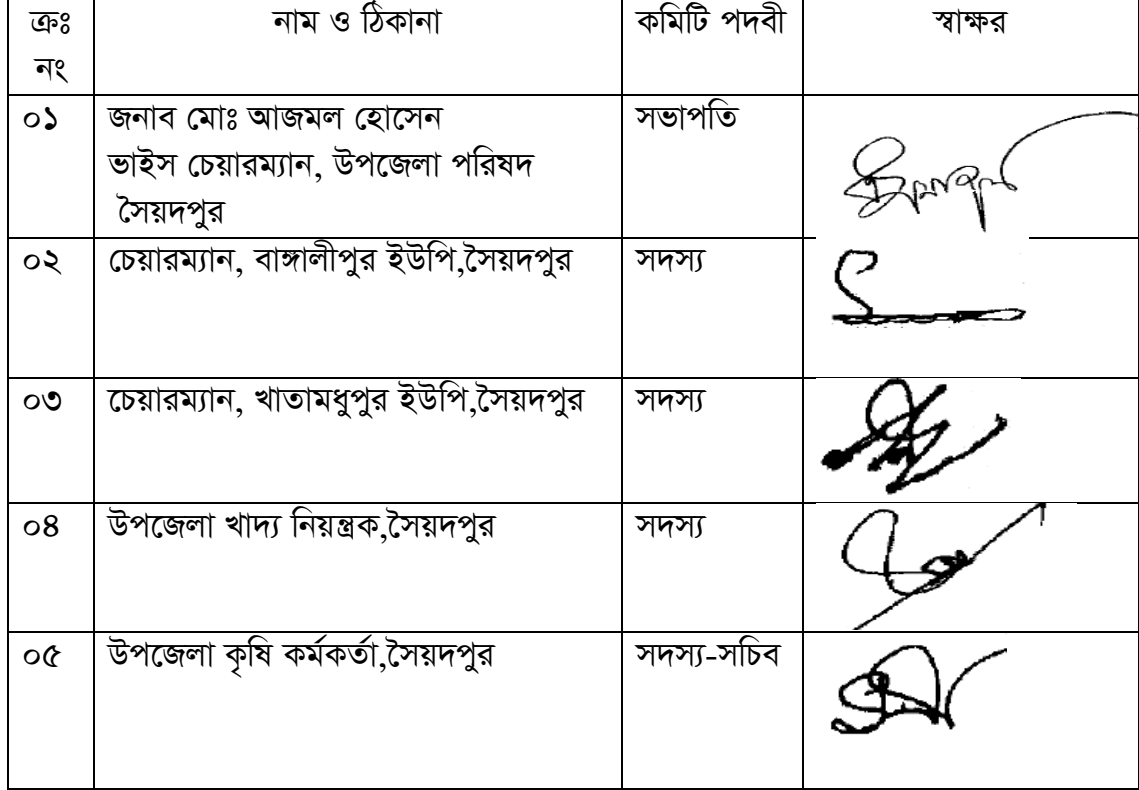 ক্রঃ নাম ও ঠিকানা কমিটি পদবী স্বাক্ষর
নং
০১ জনাব মোঃ আজমল হোসেন সভাপতি
ভাইস চেয়ারম্যান, উপজেলা পরিষদ
সৈয়দপুর
০২ চেয়ারম্যান, বাঙ্গালীপুর ইউপি,সৈয়দপুর সদস্য
০৩ চেয়ারম্যান, খাতামধুপুর ইউপি,সৈয়দপুর সদস্য
০৪ উপজেলা খাদ্য নিয়ন্ত্রক,সৈয়দপুর সদস্য
০৫ উপজেলা কৃষি কর্মকর্তা,সৈয়দপুর সদস্য-সচিব